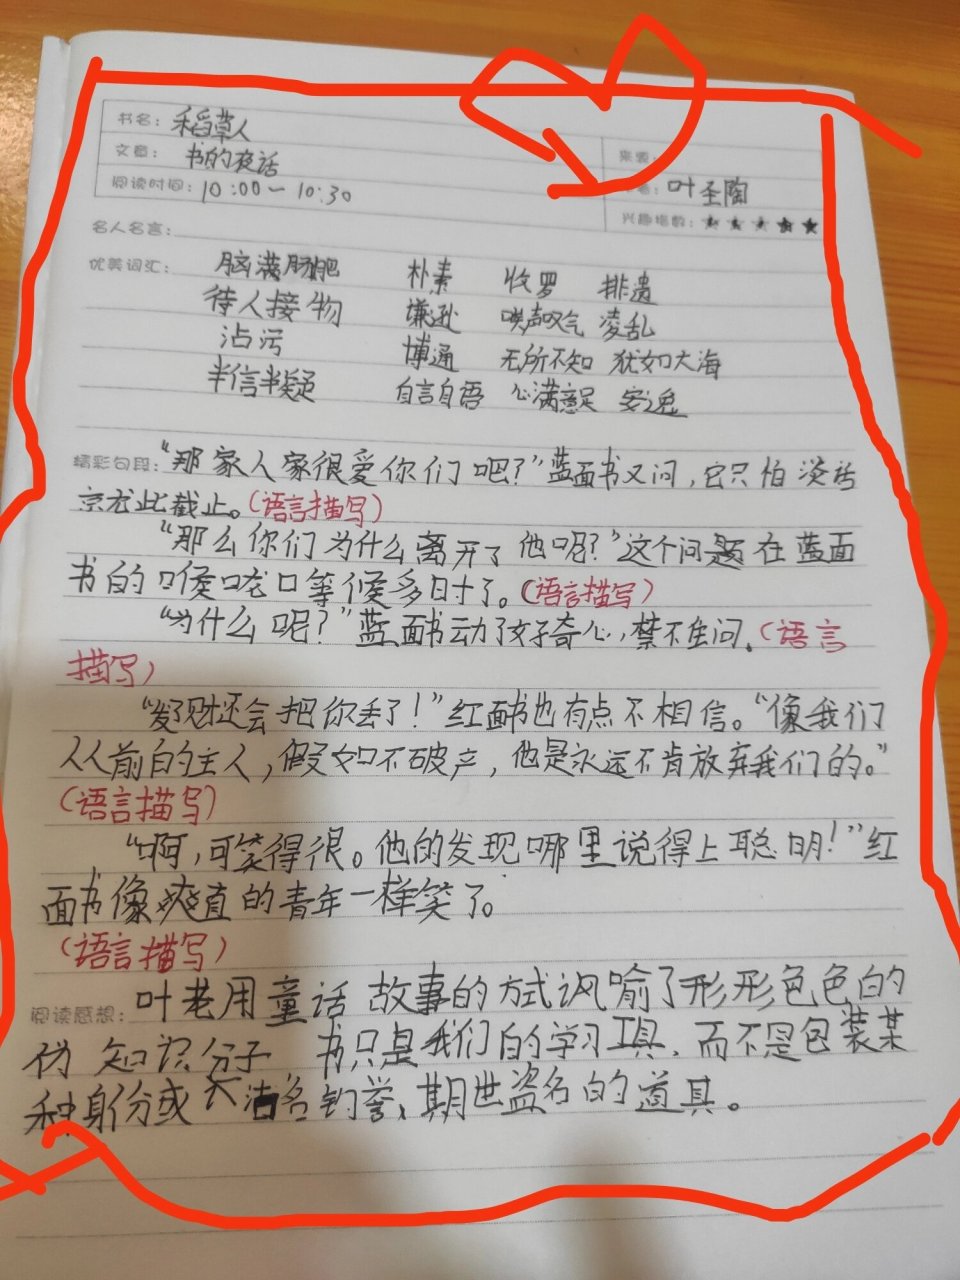 书名: 稻草人
来源:
文章: 书的夜话
叶圣陶
阅读时间: 10:00— 10:30
兴趣指数: ★★★★★
名人名言:
优美词汇: 脑满肠肥 朴素 收罗 排遣
待人接物 谦逊 唉声叹气 凌乱
沾污 博通 无所不知 犹如大海
半信半疑 自言自语 心满意足 安逸
精彩句段: “那家人家很爱你们吧?”蓝面书又问,它只怕谈话
就此截止。(语言描写)
“那么你们为什么离开了他呢?”这个问题在蓝面
书的喉咙口等候多时了。(语言描写)
“为什么呢?”蓝面书动了好奇心,禁不住问。(语言
描写)
“发了财还会把你丢了!”红面书也有点不相信。“像我们
从前的主人,假如不破产,他是永远不肯放弃我们的。”
(语言描写)
“啊,可笑得很。他的发现哪里说得上聪明!”红
面书像爽直的青年一样笑了。
(语言描写)
阅读感想: 叶老用童话故事的方式讽喻了形形色色的
伪知识分子 书只是我们的学习工具,而不是包装某
种身份或 沽名钓誉、期世盗名的道具。